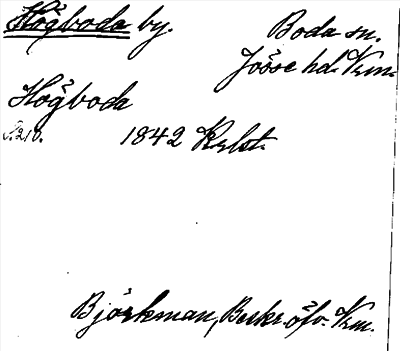 Högboda by.
Boda sn.
Jösse hd. Vrm.
Högboda
S. 210.
1842 Krlst.
Björkman, Beskr. öfv. Vrm.